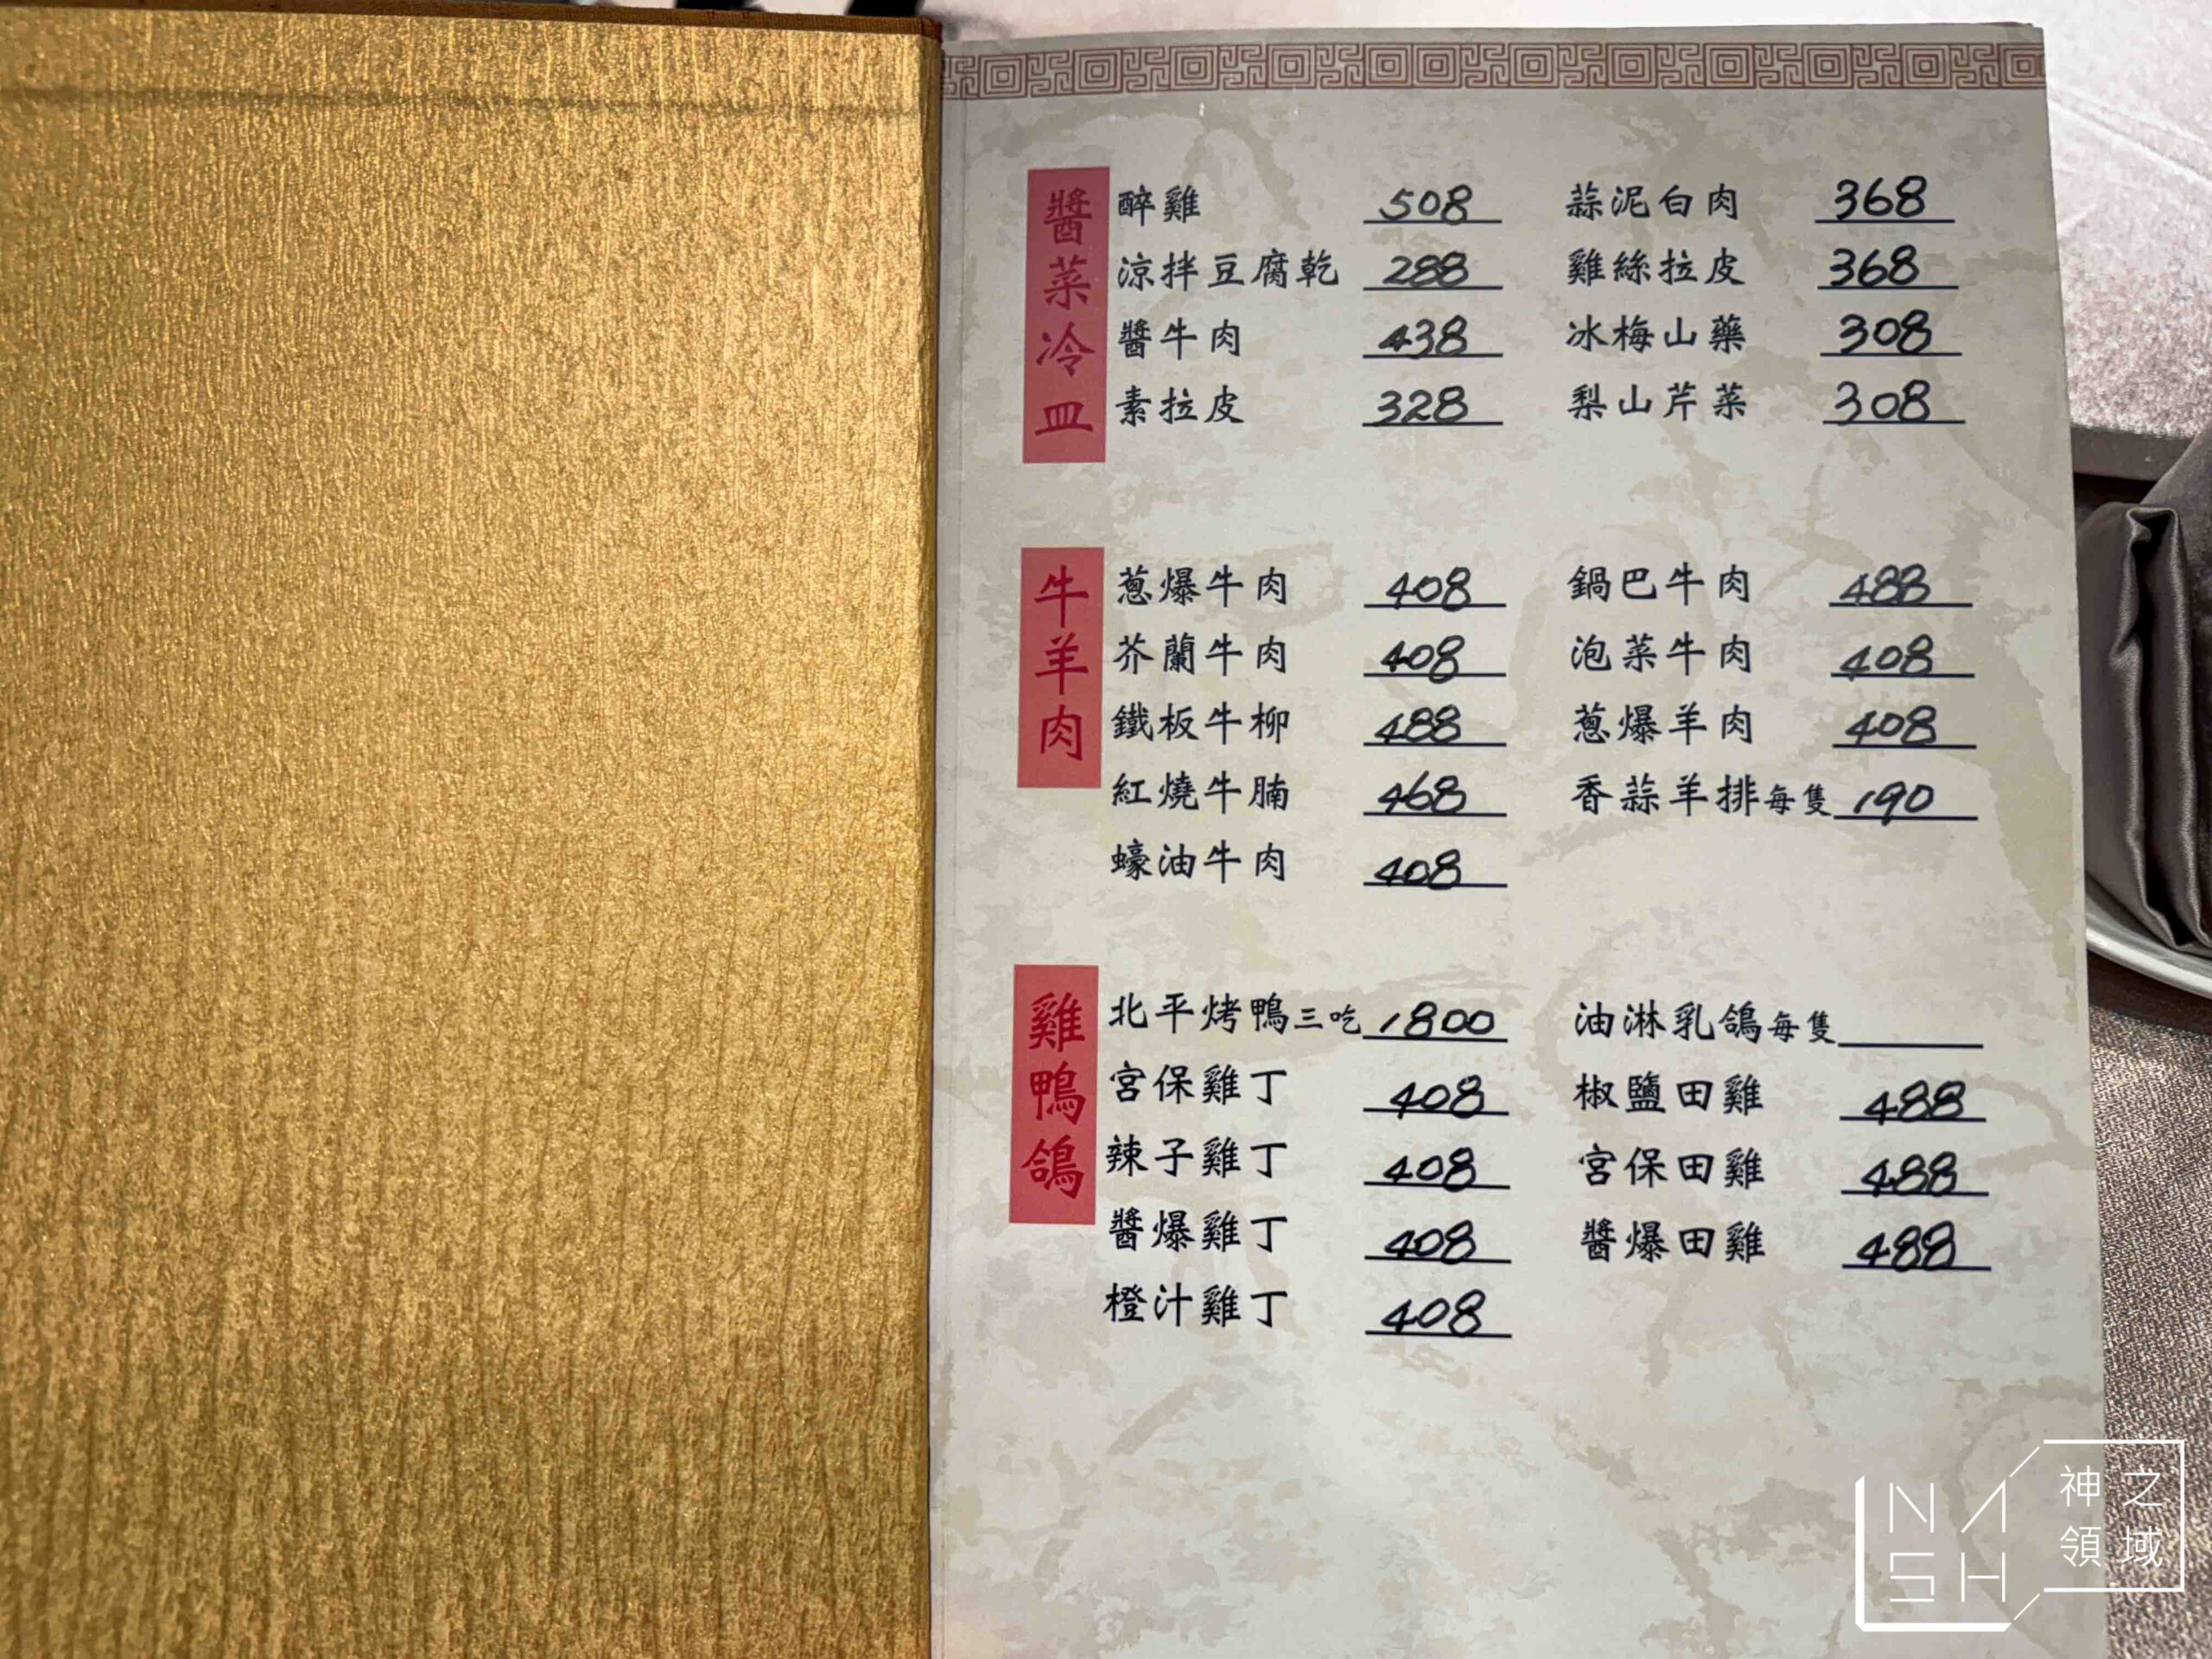 醬菜冷皿
醉雞 508 蒜泥白肉 368
涼拌豆腐乾 288 雞絲拉皮 368
醬牛肉 438 冰梅山藥 308
素拉皮 328 梨山芹菜 308
牛羊肉
蔥爆牛肉 408 鍋巴牛肉 488
芥蘭牛肉 408 泡菜牛肉 408
鐵板牛柳 488 蔥爆羊肉 408
紅燒牛腩 468 香蒜羊排每隻 190
蠔油牛肉 408
雞鴨鴿
北平烤鴨三吃 1800 油淋乳鴿每隻
宮保雞丁 408 椒鹽田雞 488
辣子雞丁 408 宮保田雞 488
醬爆雞丁 408 醬爆田雞 488
橙汁雞丁 408
NASH
神之領域